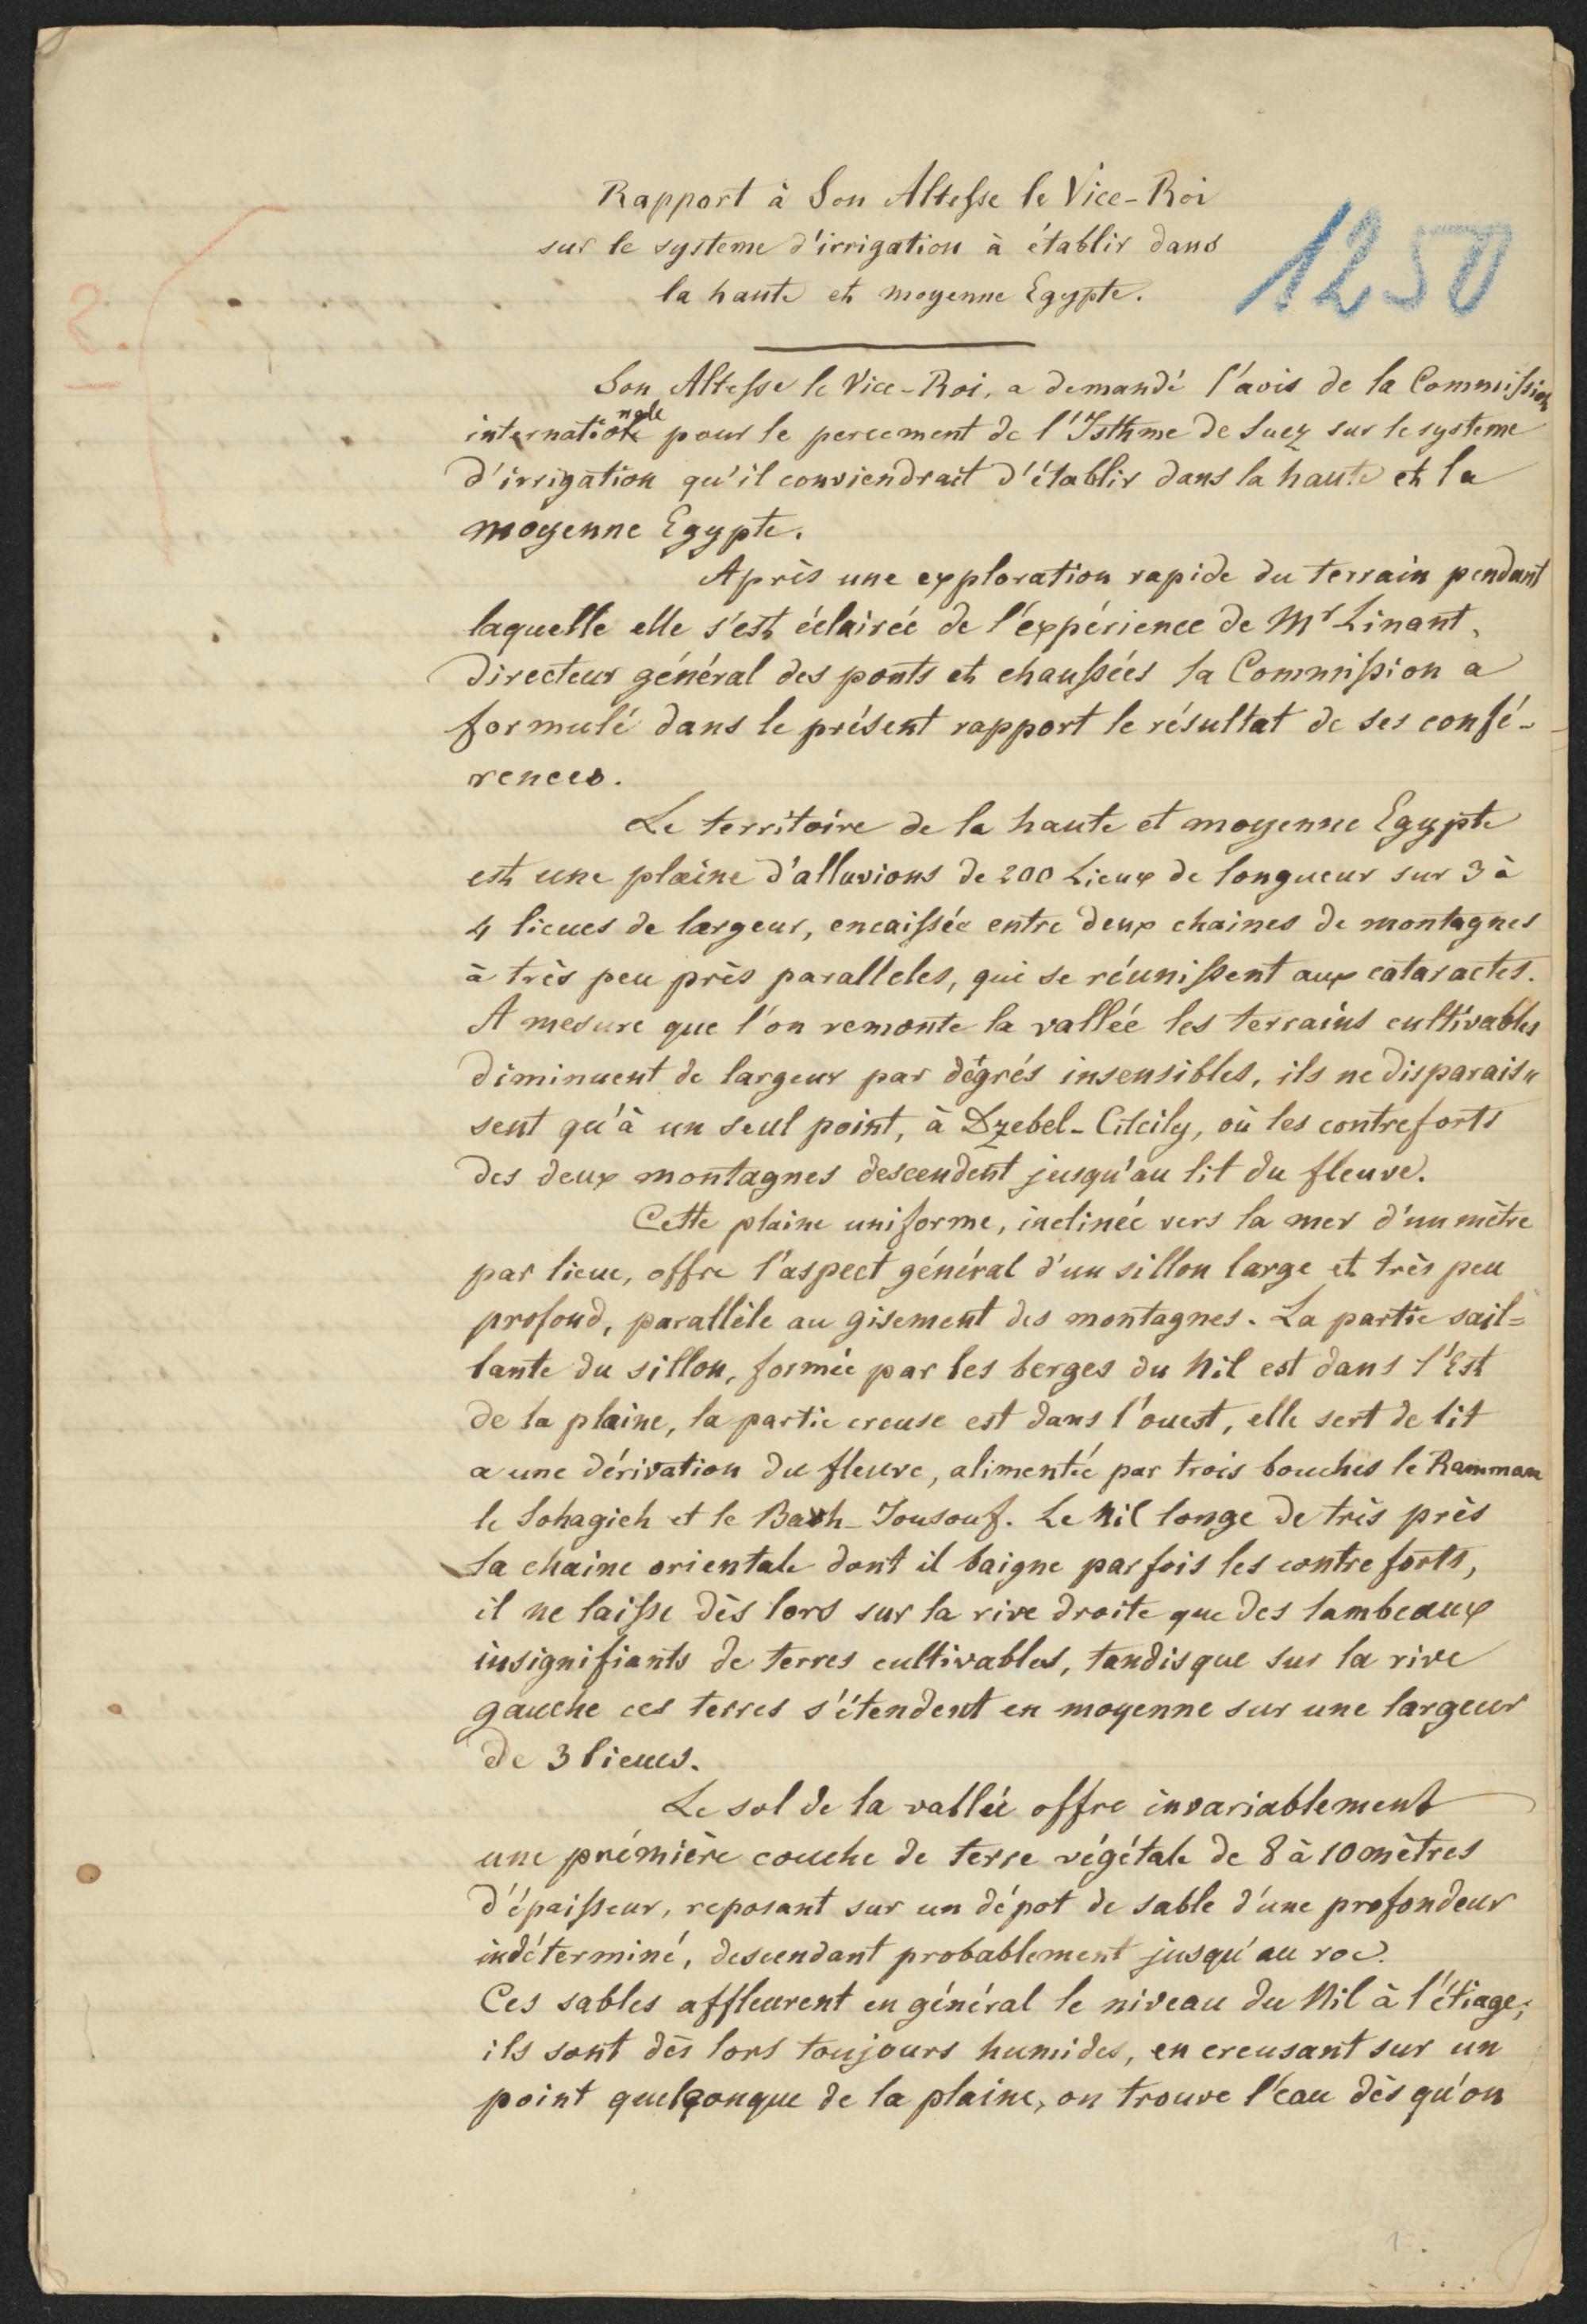 Rapport à Son Altesse le Vice-Roi
sur le systeme d'irrigation à établir dans
la haute et moyenne Egypte.
1250
Son Altesse le Vice-Roi, a demandé l'avis de la Commission
internationale pour le percement de l'Isthme de Suez sur le systeme
d'irrigation qu'il conviendrait d'établir dans la haute et la
moyenne Egypte.
Après une exploration rapide du terrain pendant
laquelle elle s'est éclairée de l'expérience de Mr Linant,
Directeur général des ponts et chaussées la Commission a
formulé dans le présent rapport le résultat de ses confé-
rences.
Le territoire de la haute et moyenne Egypte
est une plaine d'alluvions de 200 Lieux de longueur sur 3 à
4 lieues de largeur, encaissée entre deux chaines de montagnes
à très peu près paralleles, qui se réunissent aux cataractes.
A mesure que l'on remonte la vallée les terrains cultivables
diminuent de largeur par dégrés insensibles, ils ne disparais=
sent qu'à un seul point, à Dzebel-Cilcily, où les contreforts
des deux montagnes descendent jusqu'au lit du fleuve.
Cette plaine uniforme, inclinée vers la mer d'un mètre
par lieue, offre l'aspect général d'un sillon large et très peu
profond, parallèle au gisement des montagnes. La partie sail=
lante du sillon, formée par les berges du Nil est dans l'Est
de la plaine, la partie creuse est dans l'ouest, elle sert de lit
a une dérivation du fleuve, alimentée par trois bouches le Ramman
le Sohagieh et le Barh-Jousouf. Le Nil longe de très près
la chaine orientale dont il baigne parfois les contre forts,
il ne laisse dès lors sur la rive droite que des lambeaux
insignifiants de terres cultivables, tandisque sur la rive
gauche ces terres s'étendent en moyenne sur une largeur
de 3 lieues.
Le sol de la vallée offre invariablement
une prémière couche de terre végétale de 8 à 10 mètres
d'épaisseur, reposant sur un dépot de sable d'une profondeur
indéterminé, descendant probablement jusqu'au roc.
Ces sables affleurent en général le niveau du Nil à l'étiage;
ils sont dès lors toujours humides, en creusant sur un
point quelconque de la plaine, on trouve l'eau dès qu'on